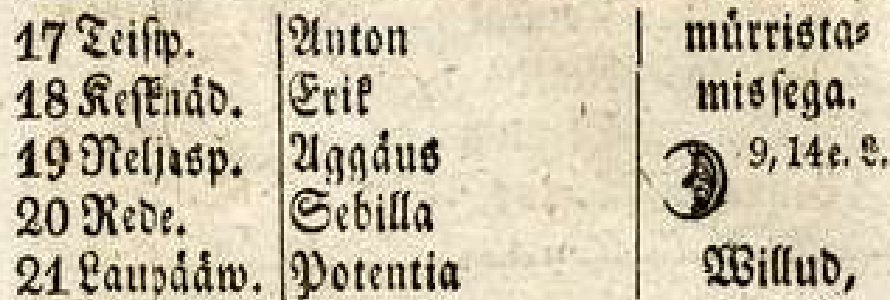 17 Teisip. Anton mürrista⸗
18 Keſknäd. Erik misſega.
19 Neljasp. Aggäus 9, 14 e. L.
20 Rede. Sebilla
21 Laupääw. Potentia Willud,